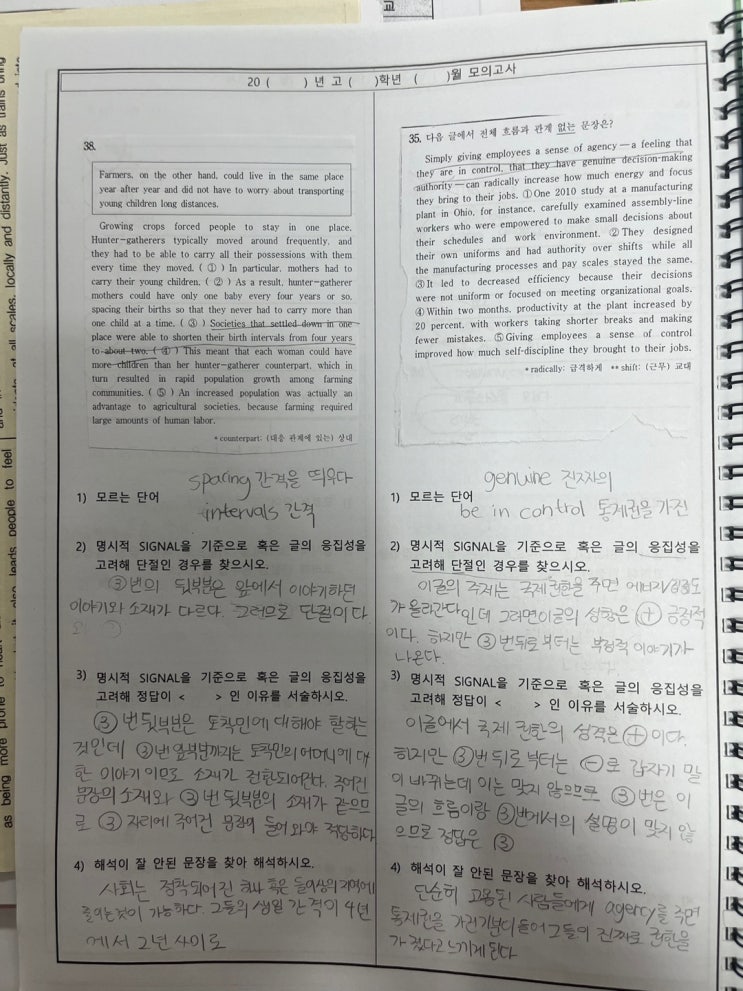 20 (     ) 년 고 (     )학년 (     )월 모의고사
38.
Farmers, on the other hand, could live in the same place
year after year and did not have to worry about transporting
young children long distances.
Growing crops forced people to stay in one place.
Hunter-gatherers typically moved around frequently, and
they had to be able to carry all their possessions with them
every time they moved. ( ① ) In particular, mothers had to
carry their young children. ( ② ) As a result, hunter-gatherer
mothers could have only one baby every four years or so,
spacing their births so that they never had to carry more than
one child at a time. ( ③ ) Societies that settled down in one
place were able to shorten their birth intervals from four years
to about two. ( ④ ) This meant that each woman could have
more children than her hunter-gatherer counterpart, which in
turn resulted in rapid population growth among farming
communities. ( ⑤ ) An increased population was actually an
advantage to agricultural societies, because farming required
large amounts of human labor.
* counterpart: (대응 관계에 있는) 상대
spacing 간격을 띄우다
1) 모르는 단어
intervals 간격
2) 명시적 SIGNAL을 기준으로 혹은 글의 응집성을
고려해 단절인 경우를 찾으시오.
③번의 뒷부분은 앞에서 이야기하던
이야기와 소재가 다르다. 그러므로 단절이다
3) 명시적 SIGNAL을 기준으로 혹은 글의 응집성을
고려해 정답이 <     > 인 이유를 서술하시오.
③ 번 뒷부분은 정착민에 대해야 말하는
것인데 ③번 앞부분까지는 토착민의 어머니에 대
한 이야기 이므로 소재가 전환되어진다. 주어진
문장의 소재와 ③ 번 뒷부분의 소재가 같으므
로 ③ 자리에 주어진 문장이 들어와야 적당하다
4) 해석이 잘 안된 문장을 찾아 해석하시오.
사회는 정착되어진 하나 혹은 둘이상의 지역에
줄이는것이 가능하다. 그들의 생일 간격이 4년
에서 2년 사이로
35. 다음 글에서 전체 흐름과 관계 없는 문장은?
Simply giving employees a sense of agency — a feeling that
they are in control, that they have genuine decision-making
authority — can radically increase how much energy and focus
they bring to their jobs. ① One 2010 study at a manufacturing
plant in Ohio, for instance, carefully examined assembly-line
workers who were empowered to make small decisions about
their schedules and work environment. ② They designed
their own uniforms and had authority over shifts while all
the manufacturing processes and pay scales stayed the same.
③ It led to decreased efficiency because their decisions
were not uniform or focused on meeting organizational goals.
④ Within two months, productivity at the plant increased by
20 percent, with workers taking shorter breaks and making
fewer mistakes. ⑤ Giving employees a sense of control
improved how much self-discipline they brought to their jobs.
* radically: 급격하게 ** shift: (근무) 교대
genuine 진짜의
1) 모르는 단어
be in control 통제권을 가진
2) 명시적 SIGNAL을 기준으로 혹은 글의 응집성을
고려해 단절인 경우를 찾으시오.
이글의 주제는 국제권한을 주면 에너지/집중도
가 올라간다인데 그러면이글의 성향은 ⊕ 긍정적
이다. 하지만 ③ 번뒤로부터는 부정적 이야기가
나온다.
3) 명시적 SIGNAL을 기준으로 혹은 글의 응집성을
고려해 정답이 <     > 인 이유를 서술하시오.
이글에서 국제 권한의 성격은 ⊕ 이다.
하지만 ③번 뒤로 부터는 ⊖로 갑자기 말
이 바뀌는데 이는 맞지 않으므로 ③번은 이
글의 흐름이랑 ③번에서의 설명이 맞지 않
으므로 정답은 ③
4) 해석이 잘 안된 문장을 찾아 해석하시오.
단순히 고용된 사람들에게 agency를 주면
통제권을 가진기분이들어 그들의 진짜로 권한을
가 졌다고 느끼게 된다